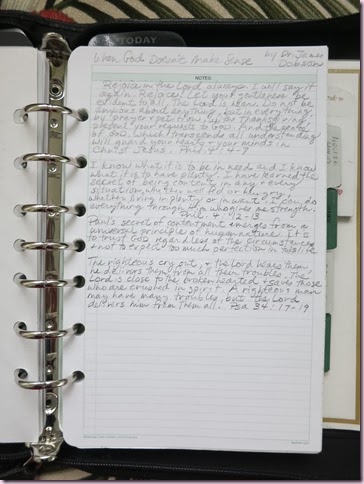 TODAY
When God Doesn't Make Sense by Dr. James
Dobson
NOTES
Rejoice in the Lord always. I will say it
again: Rejoice! Let your gentleness be
evident to all. The Lord is near. Do not be
anxious about anything, but in everything
by prayer + petition, with thanksgiving
present your requests to God. And the peace
of God, which transcends all understanding
will guard your hearts + your minds in
Christ Jesus. Phil 4:4-7
I know what it is to be in need and I know
what it is to have plenty. I have learned the
secret of being content in any + every
situation, whether well fed or hungry,
whether living in plenty or in want. I can do
everything through Him who gives me strength.
Phil. 4:12-13
Paul's secret of contentment emerges from a
universal principle of human nature. It is
to trust God regardless of the circumstances
and to expect too much perfection in this life.
The righteous cry out, + the Lord hears them
he delivers them from all their troubles. The
Lord is close to the brokenhearted + saves those
who are crushed in spirit. A righteous man
may have many troubles, but the Lord
delivers him from them all. Psa 34:17-19